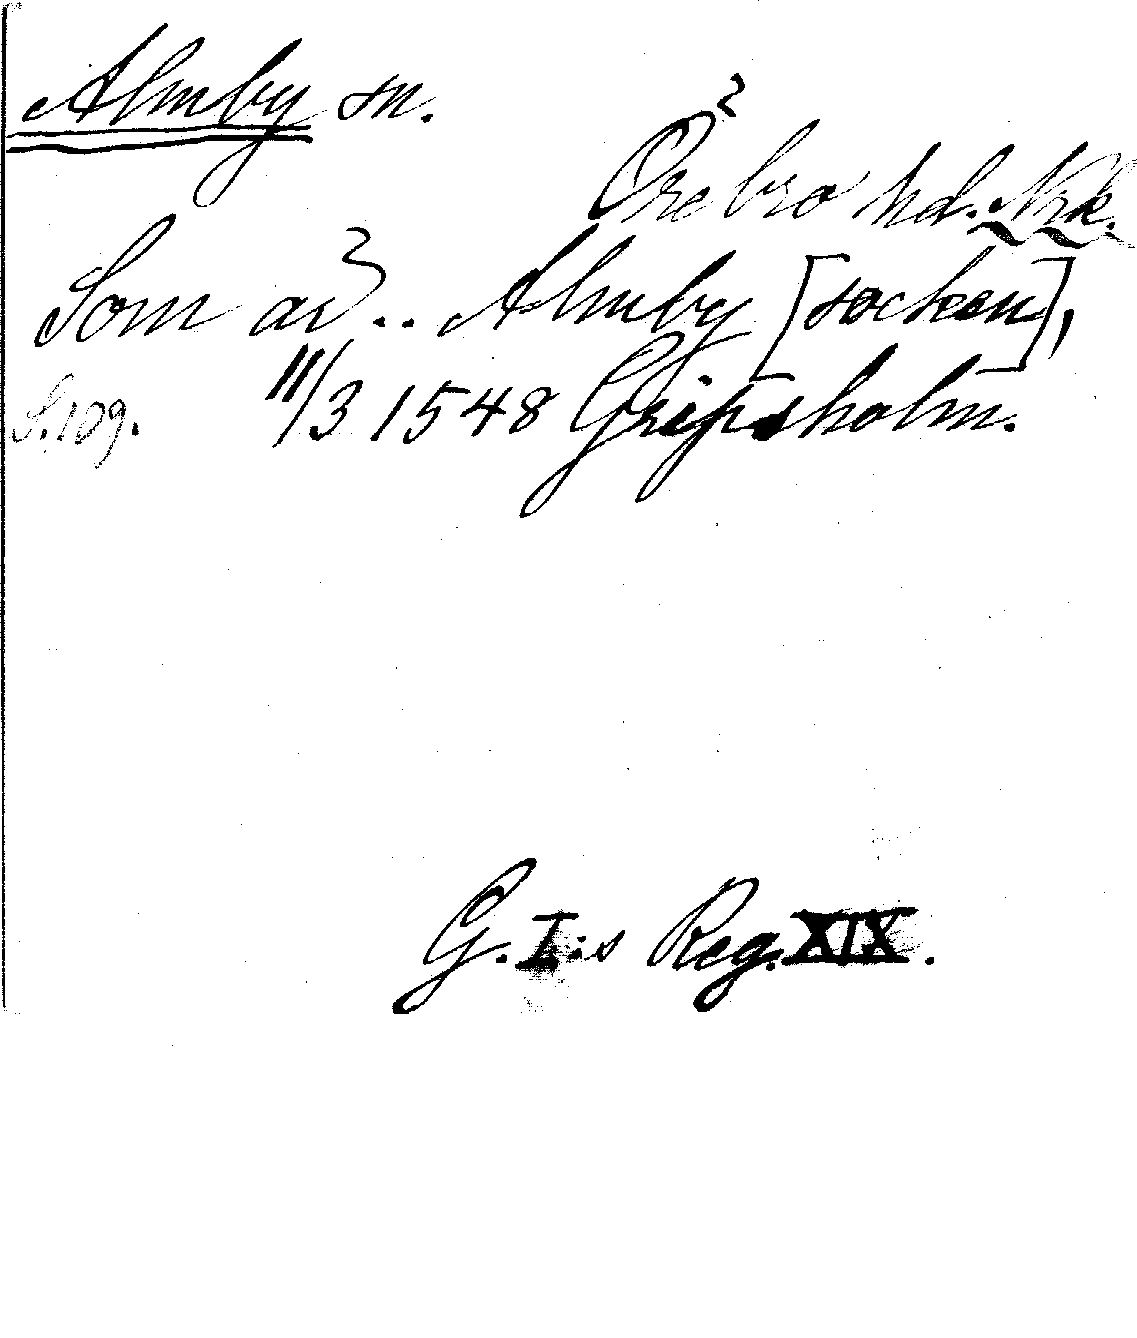 Almby sn.
Örebro hd. Nrk.
Som av .. Almby [socken],
S. 109. 11/3 1548 Gripsholm.
G. I:s Reg. XIX.